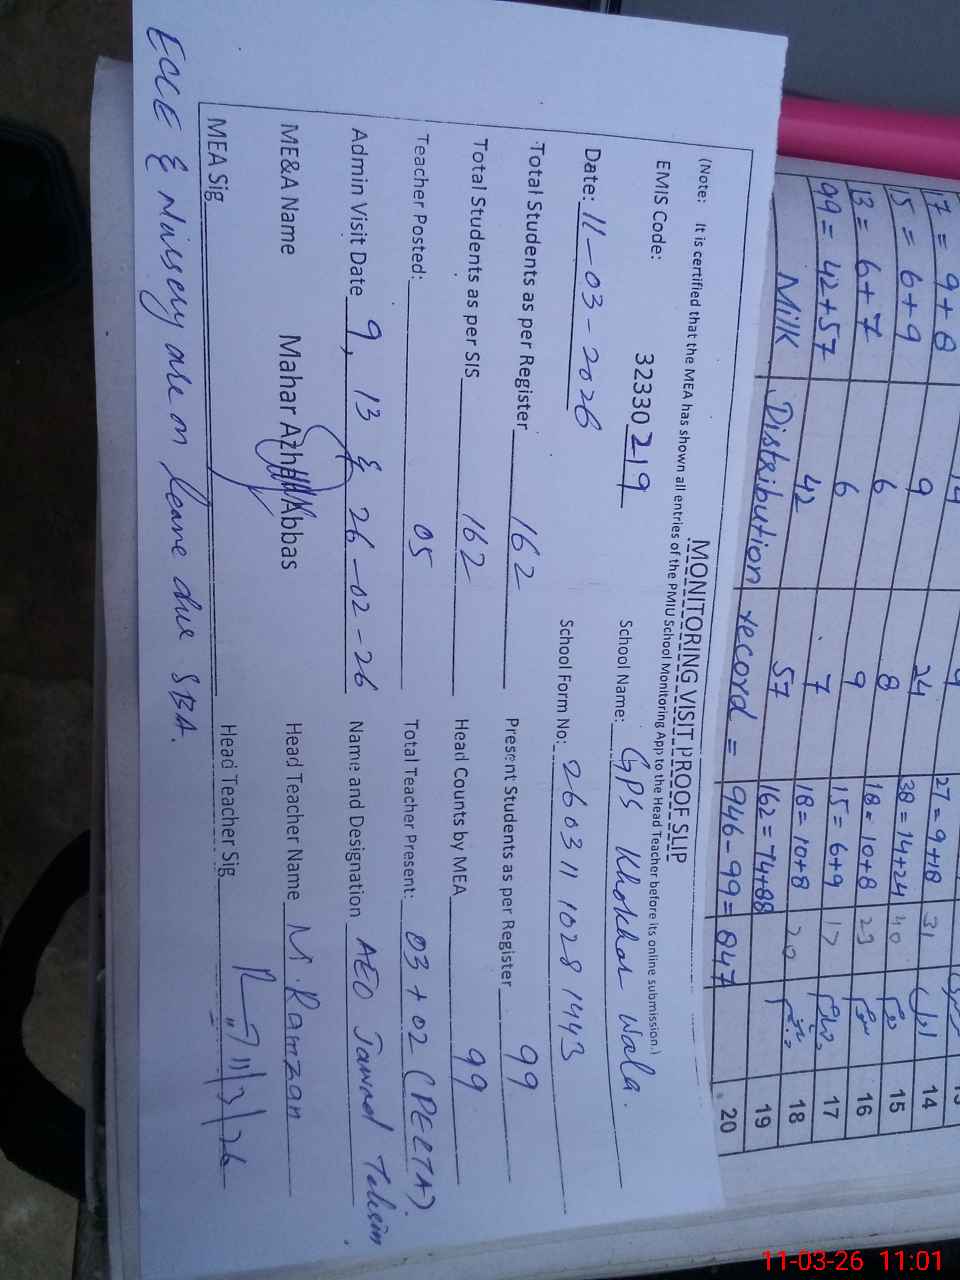 MONITORING VISIT PROOF SLIP
(Note: It is certified that the MEA has shown all entries of the PMIU School Monitoring App to the Head Teacher before its online submission.)
EMIS Code: 32330219 School Name: GPS Khokhar Wala.
Date: 11-03-2026 School Form No: 2603111028 1443
Total Students as per Register 162 Present Students as per Register 99
Total Students as per SIS 162 Head Counts by MEA 99
Teacher Posted: 05 Total Teacher Present: 03+02 (PECTA)
Admin Visit Date 9, 13 & 26-02-26 Name and Designation AEO Jawad Tehsin
ME&A Name Mahar Azhar Abbas Head Teacher Name M. Ramzan
MEA Sig Head Teacher Sig 11/3/26
ECCE & Nursery are on leave due SBA.
17 = 9+8 9 27=9+18 31 14
15 = 6+9 6 8 38=14+24 40 15
13 = 6+7 6 9 18=10+8 23 16
99 = 42+57 42 7 15=6+9 17 17
57 18=10+8 20 18
162=74+88 19
Milk Distribution record = 946-99= 847 20
11-03-26 11:01